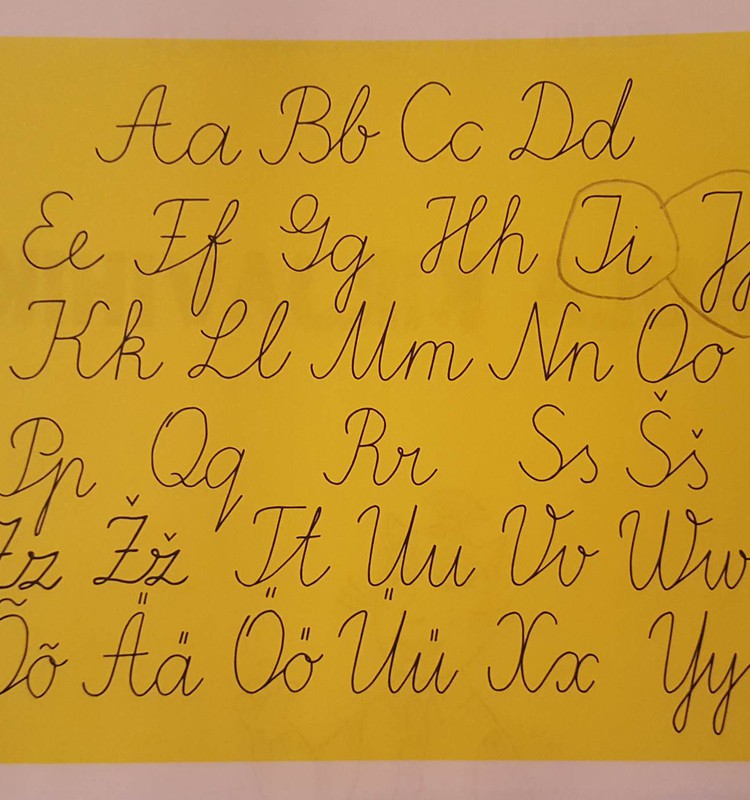 Aa Bb Cc Dd
Ee Ff Gg Hh Ii J
Kk Ll Mm Nn Oo
Pp Qq Rr Ss Šš
Zz Žž Tt Uu Vv Ww
Õõ Ää Öö Üü Xx Yy